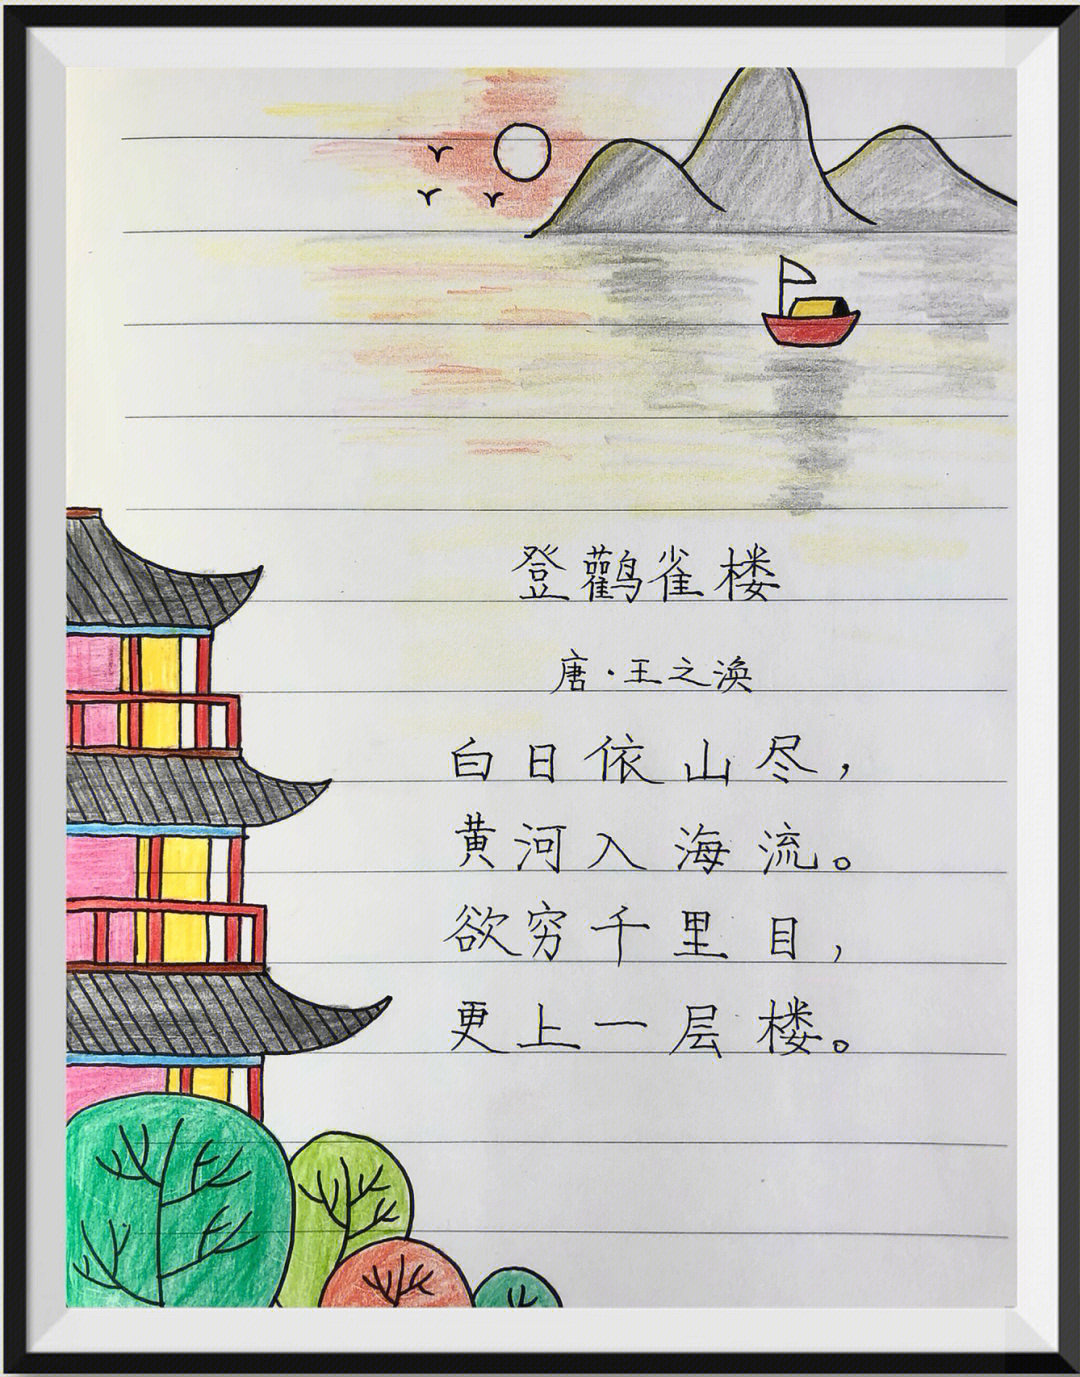 登鹳雀楼
唐·王之涣
白日依山尽，
黄河入海流。
欲穷千里目，
更上一层楼。